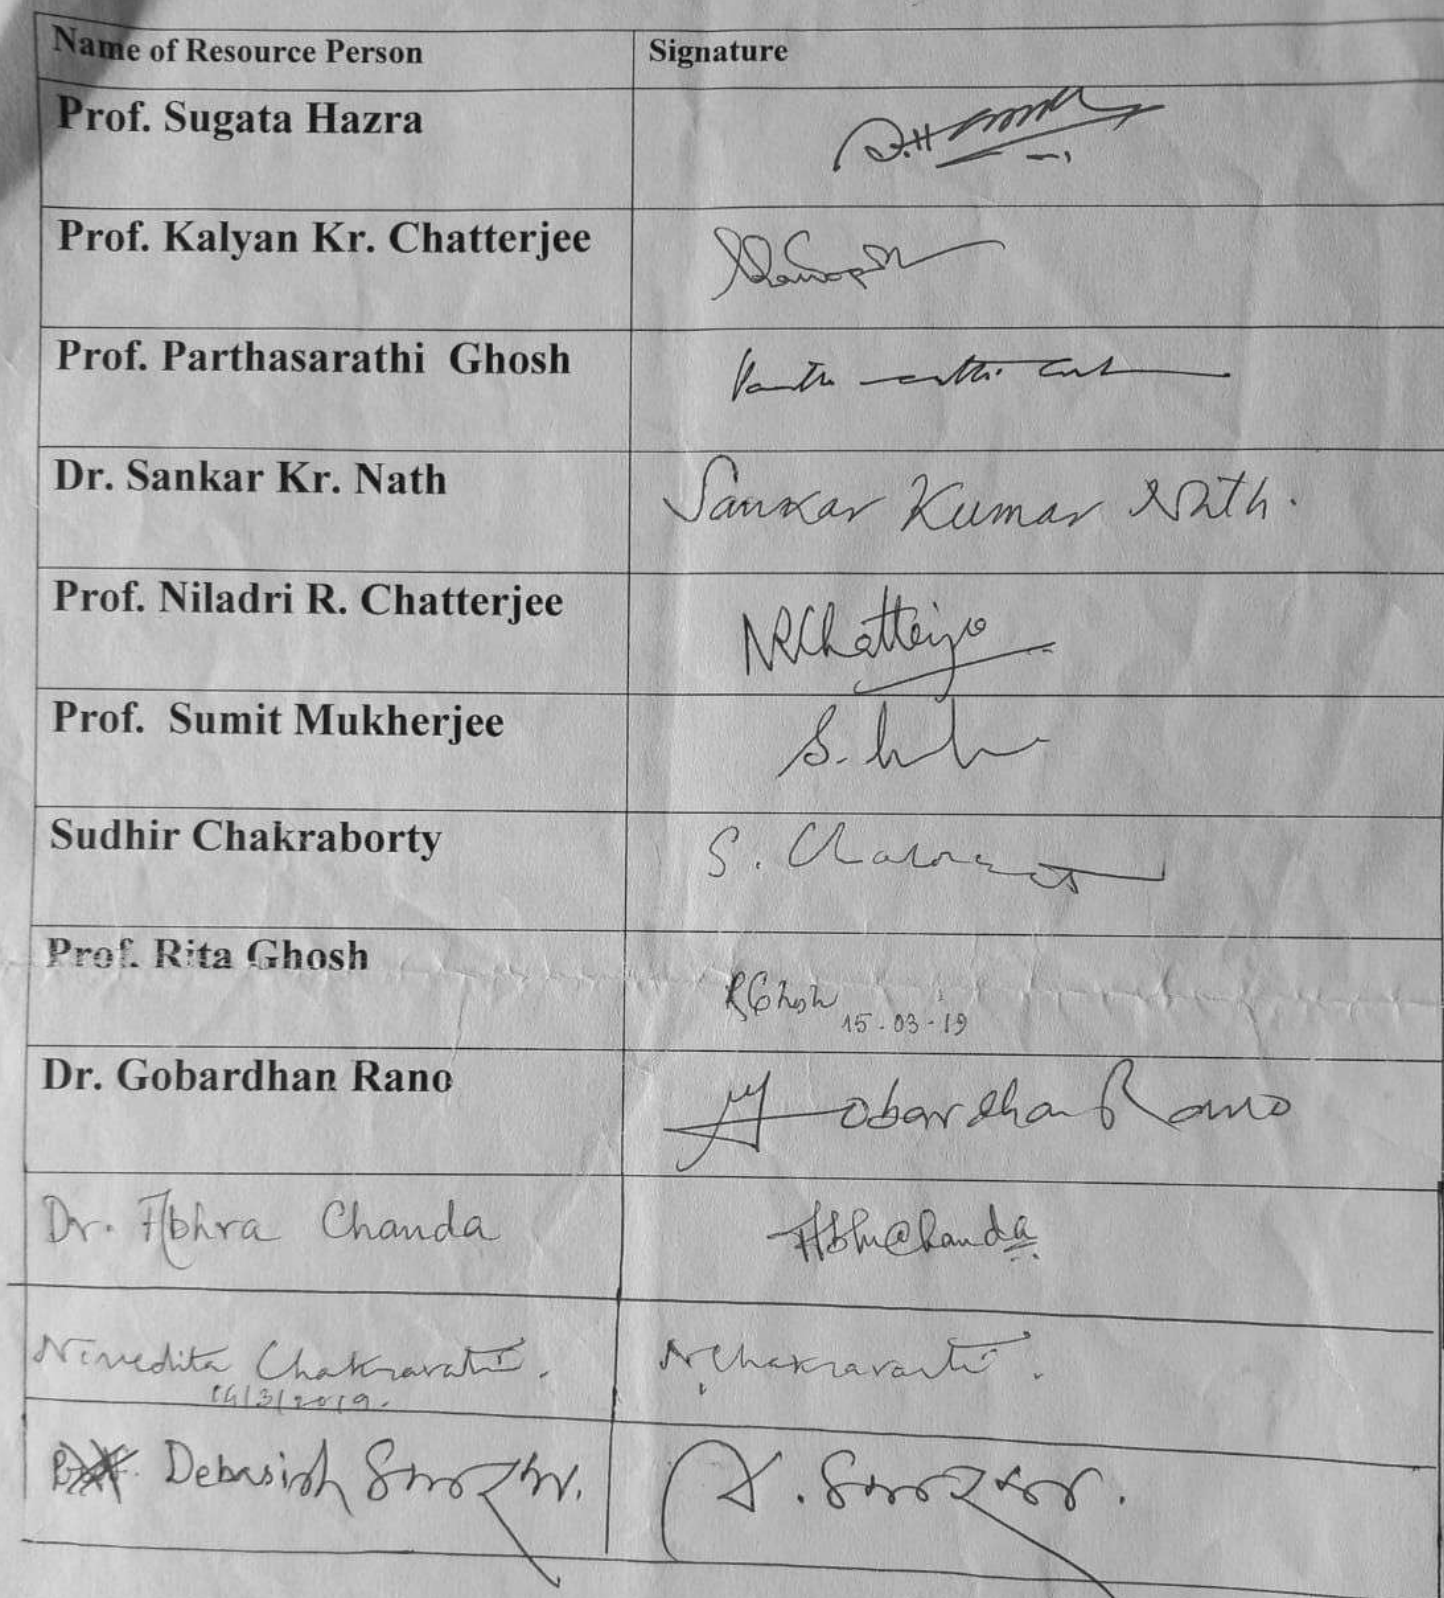 Name of Resource Person Signature
Prof. Sugata Hazra
Prof. Kalyan Kr. Chatterjee
Prof. Parthasarathi Ghosh
Dr. Sankar Kr. Nath Sankar Kumar Nath.
Prof. Niladri R. Chatterjee NRChatterjee
Prof. Sumit Mukherjee S.
Sudhir Chakraborty S.
Prof. Rita Ghosh RGhosh
15-03-19
Dr. Gobardhan Rano Gobardhan Rano
Dr. Abhra Chanda Abhra Chanda
Nivedita Chakravarti. NChakravarti.
14/3/2019.
Debasish